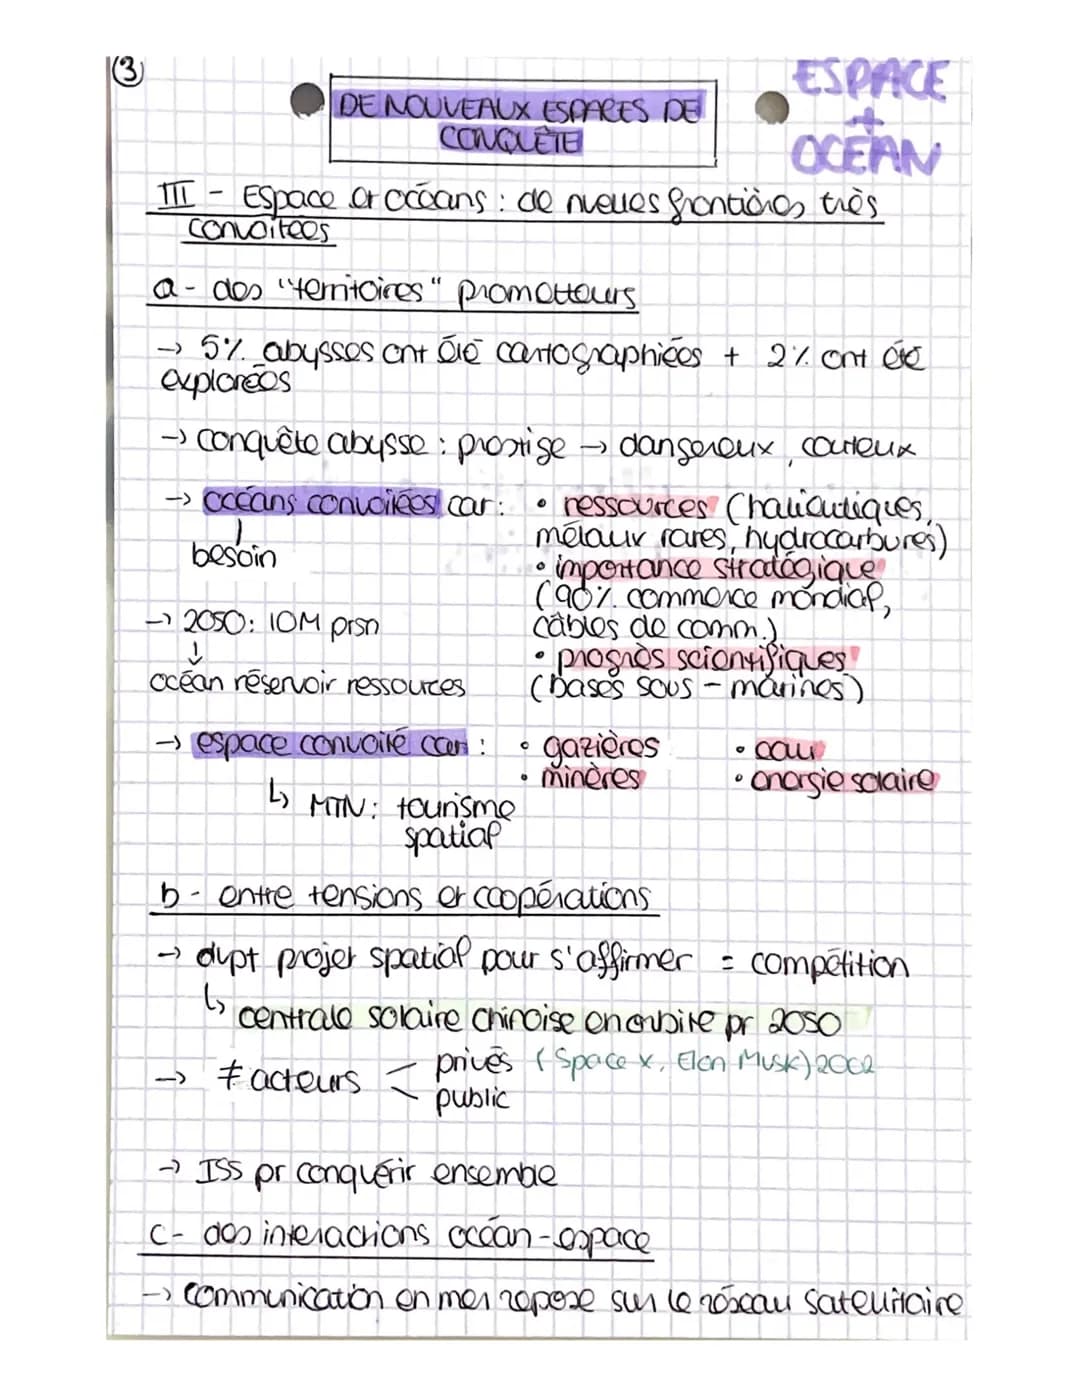 (3)
ESPACE
+
OCÉAN
DE NOUVEAUX ESPACES DE
CONQUÊTE
III - Espace et océans : de nvelles frontières très
convoitées
a - des "territoires" prometteurs
→ 5% abysses ont été cartographiées + 2% ont été
explorées
→ conquête abysse : prestige → dangereux, couteux
→ océans convoitées car : • ressources (halieutiques,
métaux rares, hydrocarbures)
besoin
• importance stratégique
(90% commerce mondial,
→ 2050: 10M prsn
câbles de comm.)
↓
• progrès scientifiques
océan réservoir ressources
(bases sous-marines)
→ espace convoité car : • gazières • eau
• minères • énergie solaire
↳ MTN: tourisme
spatial
b - entre tensions et coopérations
→ dvpt projet spatial pour s'affirmer = compétition
↳ centrale solaire chinoise en orbite pr 2050
→ ≠ acteurs < privés (Space x, Elon Musk) 2002
public
→ ISS pr conquérir ensemble
c - des interactions océan-espace
→ communication en mer repose sur le réseau satellitaire